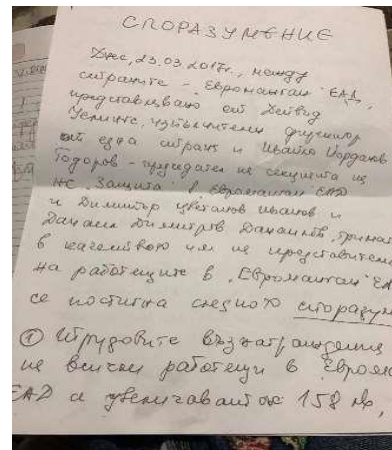 СПОРАЗУМЕНИЕ
Днес, 23.03.2017г., между
страните - "Евроманган" ЕАД,
представлявано от Дейвид
изпълнителен директор
от една страна и Ивайло Йорданов
Тодоров - председател на секцията на
НС "Защита" в Евроманган ЕАД
и Димитър Цветанов Иванов и
Данаил Димитров Данаилов, тримата
в качеството им на представители
на работещите в "Евроманган" ЕА
се постигна следното споразум
① Трудовите възнаграждения
на всички работещи в Евром
ЕАД се увеличават с 158 лв,